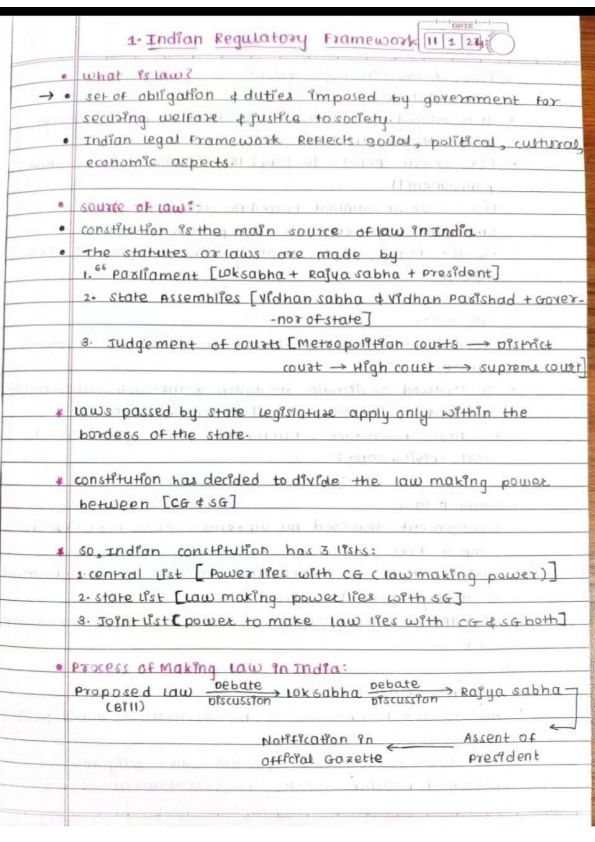 DATE
1. Indian Regulatory Framework 11 1 24
• What is law?
→ • set of obligation & duties imposed by government for
securing welfare & justice to society.
• Indian legal framework Reflects social, political, cultural,
economic aspects.
• source of law:-
• constitution is the main source of law in India.
• The statutes or laws are made by
1. " Parliament [Loksabha + Rajya sabha + president]
2. State Assemblies [Vidhan sabha & Vidhan Parishad + Gover-
-nor of state]
3. Judgement of courts [Metropolitian courts → District
court → High court → supreme court]
* laws passed by state legislature apply only within the
borders of the state.
* constitution has decided to divide the law making power
between [CG & SG]
* SO, Indian constitution has 3 lists:
1. central list [Power lies with CG (law making power)]
2. state list [Law making power lies with SG]
3. Joint list [power to make law lies with CG & SG both]
• Process of Making Law in India:
Proposed law Debate → Loksabha Debate → Rajya sabha
(Bill) Discusstion Discusstion
Notification in ← Assent of
official Gazette President